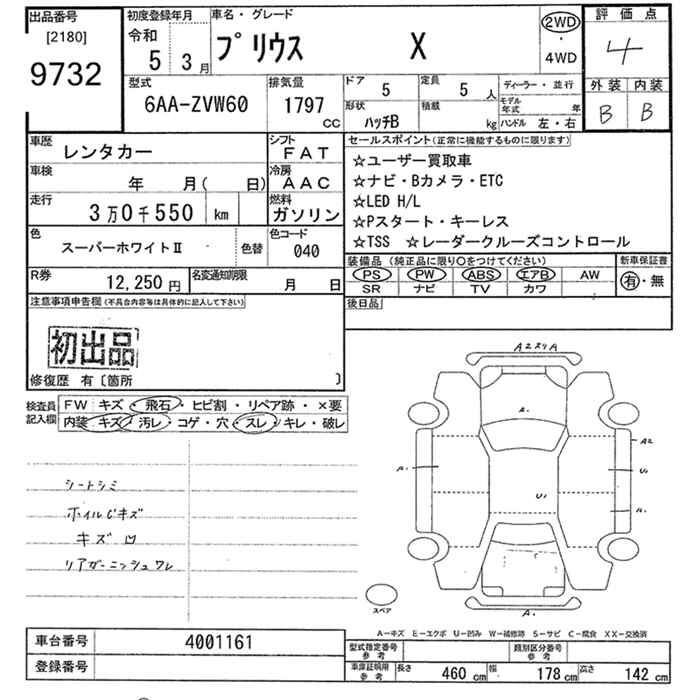 出品番号
[2180]
9732
初度登録年月
令和
5 3月
車名・グレード
プリウス X
2WD
・
4WD
評価点
4
外装 内装
B B
型式
6AA-ZVW60
排気量
1797
CC
ドア 5
定員 5 人
形状 ハッチB
積載 kg
ディーラー・並行
モデル年式 年
ハンドル 左・右
車歴
レンタカー
シフト
FAT
車検
年 月( 日)
冷房
AAC
走行
3万0千550 km
燃料
ガソリン
色
スーパーホワイトⅡ
色替
色コード
040
R券
12,250円
名変通知期限
月 日
セールスポイント(正常に機能するものに限ります)
☆ユーザー買取車
☆ナビ・Bカメラ・ETC
☆LED H/L
☆Pスタート・キーレス
☆TSS ☆レーダークルーズコントロール
装備品(純正品に限り○をつけてください)
PS PW ABS エアB AW
SR ナビ TV カワ
新車保証書
有・無
後日品
注意事項申告欄(不具合内容等は具体的に記入して下さい)
初出品
修復歴 有〔箇所 〕
検査員
記入欄
FW キズ・飛石・ヒビ割・リペア跡・×要
内装 キズ・汚レ・コゲ・穴・スレ・キレ・破レ
シートシミ
ホイルCキズ
キズ凹
リアガーニッシュワレ
A2スリA
A.
A.
A2
U1
U1
A.
A.
スペア
A-キズ E-エクボ U-凹み W-補修跡 S-サビ C-腐食 XX-交換済
車台番号
4001161
登録番号
型式指定番号
参考
類別区分番号
参考
車庫証明用
参考
長さ 460cm 幅 178cm 高さ 142cm